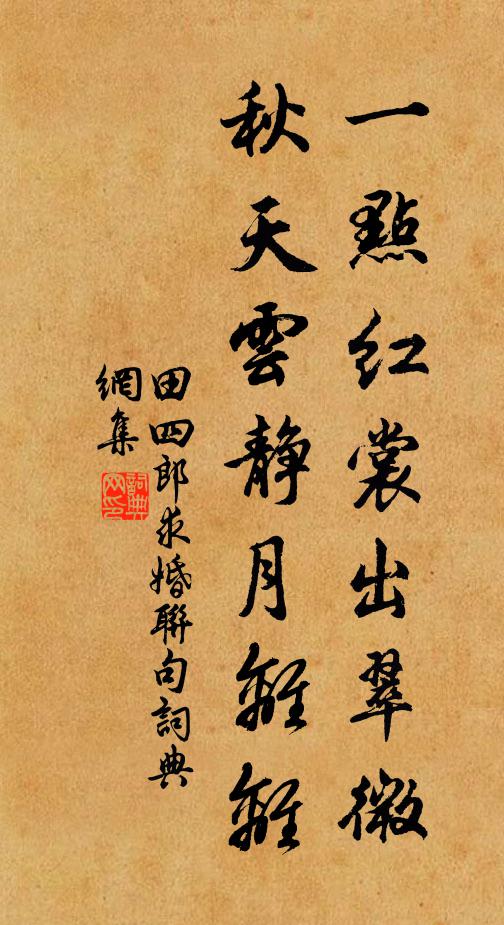 一點紅裳出翠微
秋天雲靜月離離
田四郎求婚聯句詞典
網集
詞典
网印